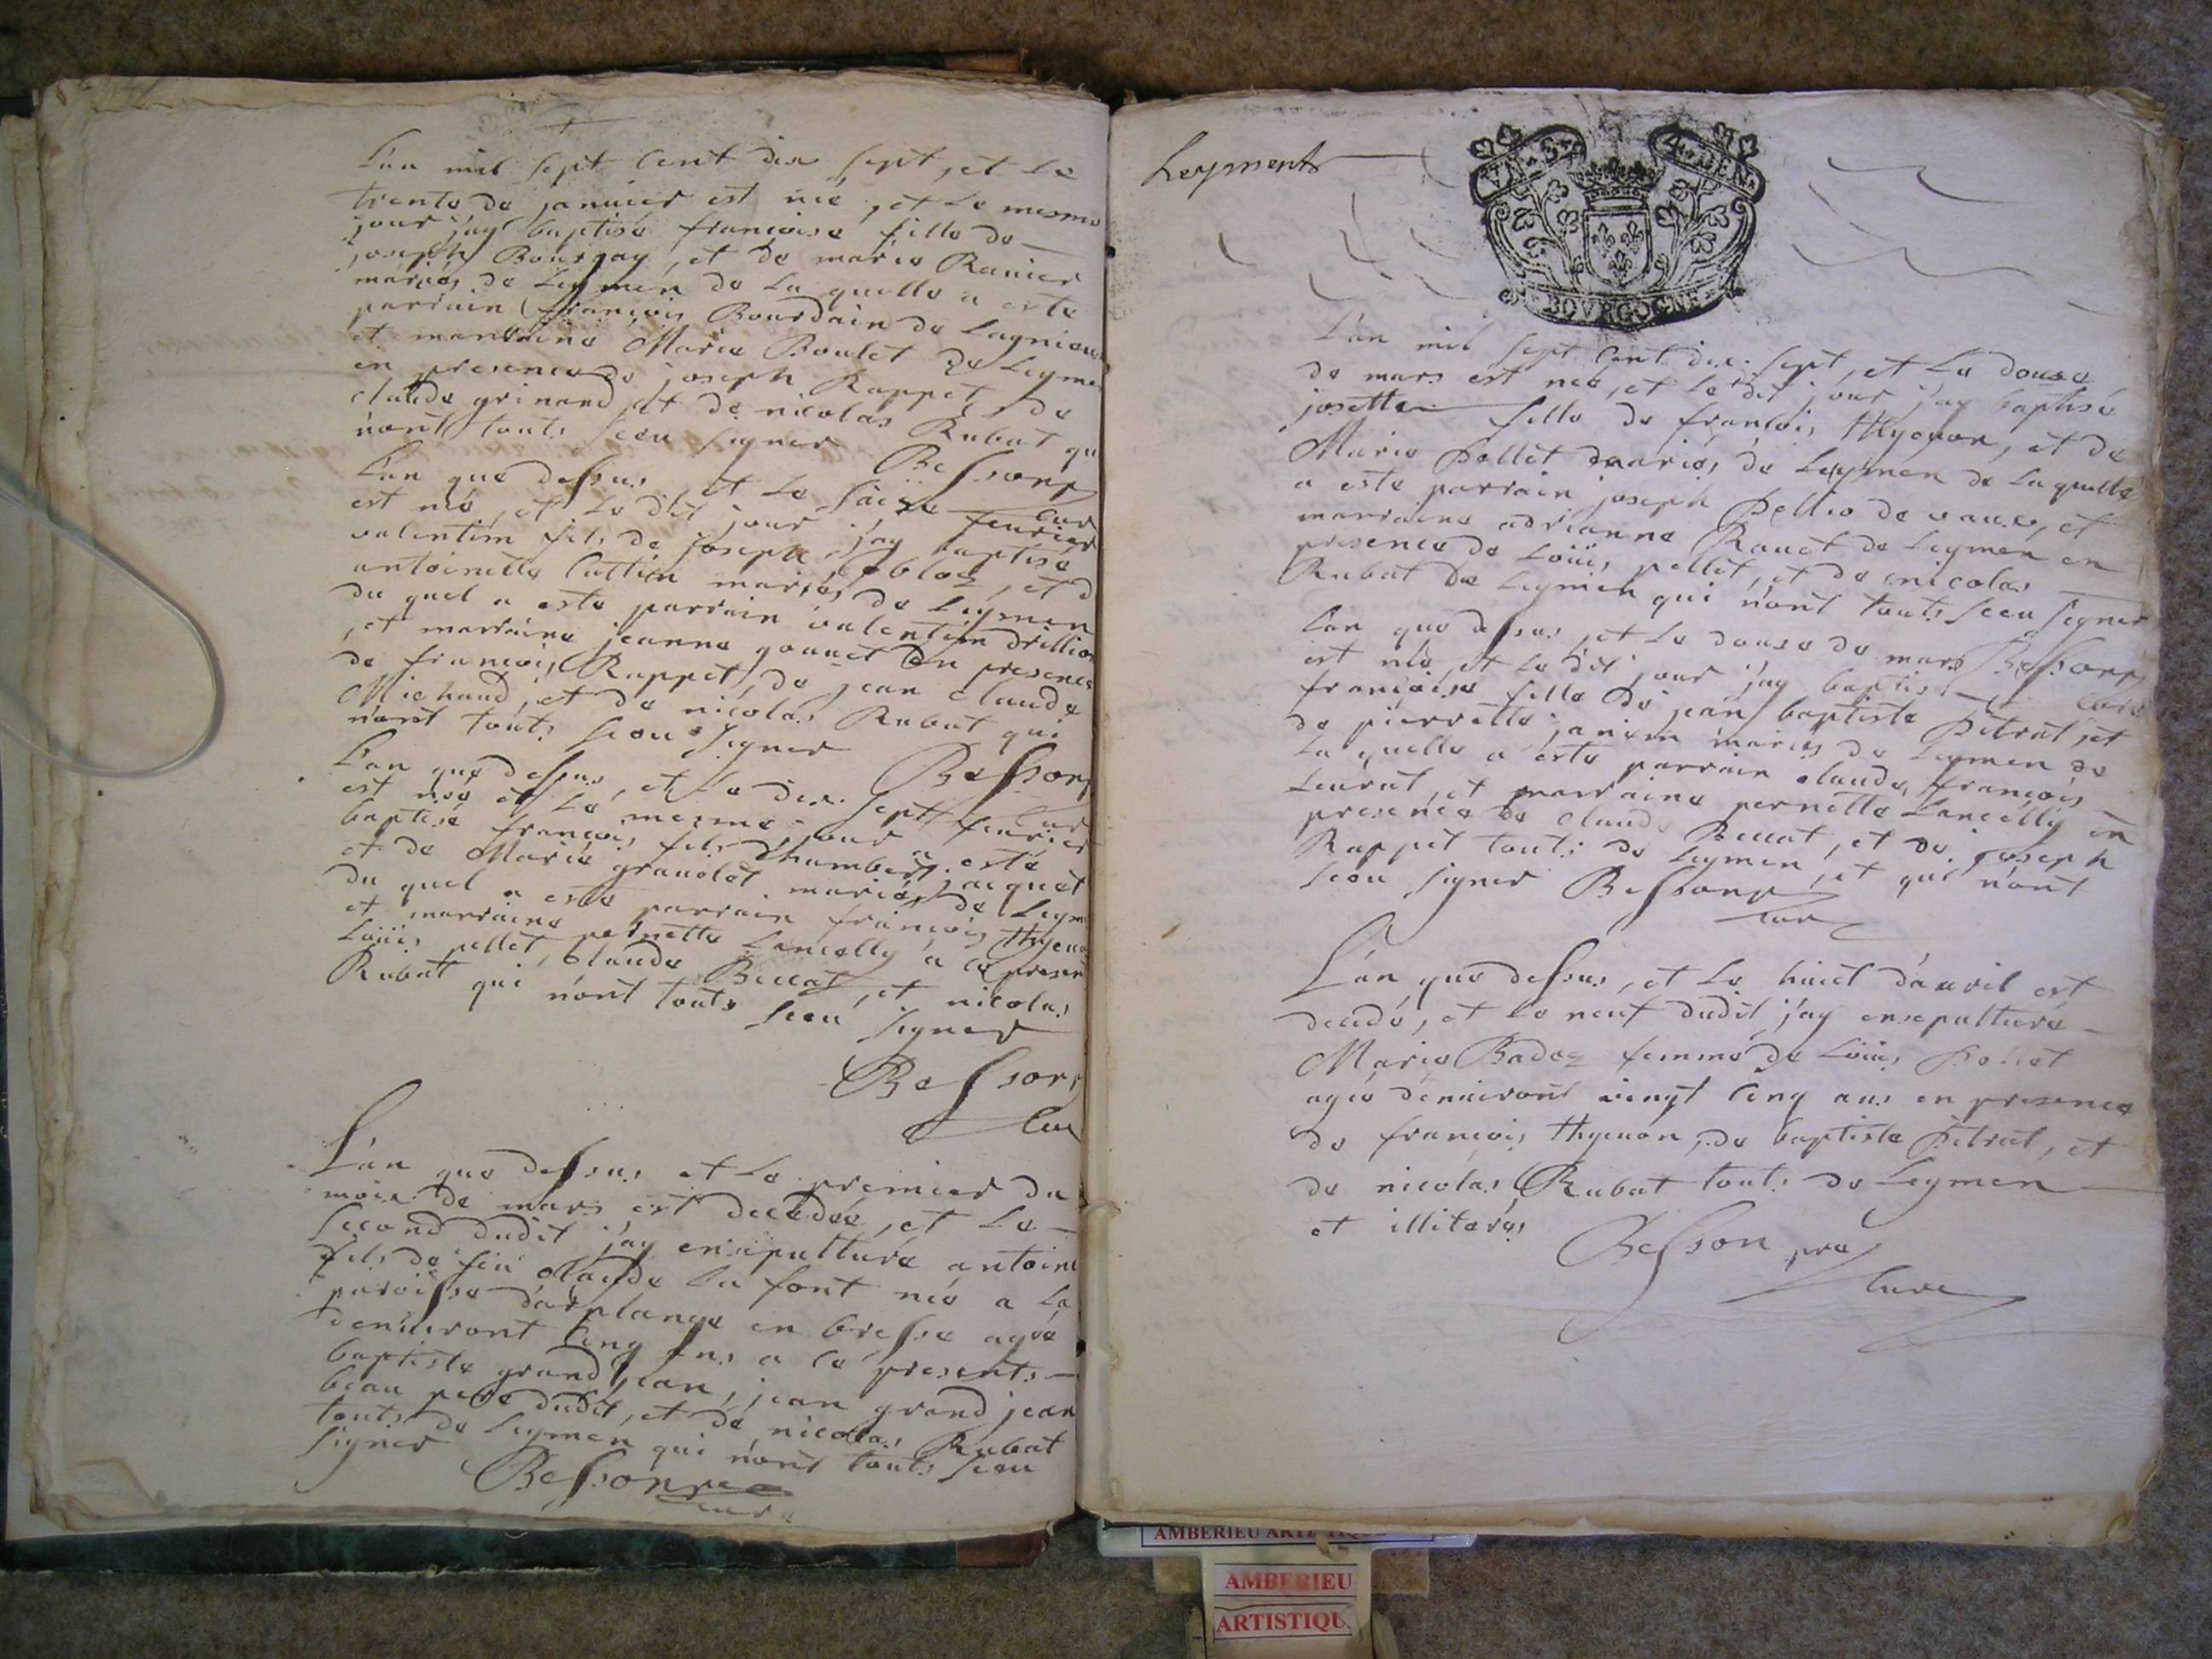 L'an mil sept cent dix sept, et le
trente de janvier est née, et le mesme
jour j'ay baptisé françoise fille de
joseph Bourgay, et de marie Ranier
mariés de Leymen de la quelle a esté
parrain françois Bourdain de Lagnieu
et marraine Marie Boulet de Leyme
en presence de joseph Rappet de
claude grinand et de nicolas Rubat qu
n'ont touts sceu signer Besson p
cur
L'an que dessus et le saise feurier
est né, et le dit jour j'ay baptisé
valentin fils de joseph obloz, et d
antoinette Cattin mariés de Leymen
du quel a esté parrain valentin drillion
, et marraine jeanne gonnet en presence
de françois Rappet, de jean claude
Michaud, et de nicolas Rubat qui
n'ont touts sceu signer
Besson p
cur
L'an que dessus, et le dix sept feurier
est né et le mesme jour a esté
baptisé françois fils d'humbert jacquet
et de Marie granolet mariés de Leym
du quel a esté parrain françois thyeuo
et marraine pernette Lancelly a ce presen
Loüis pellet, claude Beccat, et nicolas
Rubat qui n'ont touts sceu signer
Besson p
Cur
L'an que dessus et le premier du
mois de mars est decedée, et le
second dudit j'ay ensepulturé antoine
fils de feu claude La font né a la
paroisse d'arplange en bresse agée
d'enuiront cinq ans a ce presents
baptiste grand jean, jean grand jean
beau pere dudit, et de nicolas Rubat
touts de Leymen qui n'ont touts sceu
signer
Besson pre
curé
Leyments
VN. S. 4. DEN.
BOVRGOGNE
L'an mil sept cent dix sept, et le douse
de mars est née, et le dit jour j'ay baptisé
josette fille de francois thyouon, et de
Marie pellet mariés de Leymen de la quelle
a esté parrain joseph pellio de vaux, et
marraine adrianne Rauet de Leymen en
presence de Loüis pellet, et de nicolas
Rubat de Leymen qui n'ont touts sceu signer
Besson p
curé
L'an que dessus, et le douse de mars
est née, et le dit jour j'ay baptisé
françoise fille de jean baptiste pitrat, et
de pierrette janim mariés de Leymen de
la quelle a esté parrain claude françois
Leurat, et marraine pernette Lancelly en
presence de claude Beccat, et de joseph
Rappet touts de Leymen, et qui n'ont
sceu signer Besson p
cur
L'an que dessus, et le huict d'auril est
decedé, et le neuf dudit j'ay ensepulturé
Marie Badoz femme de Loüis pellet
agée d'enuiront vingt cinq ans en presence
de francois thyeuon, de baptiste pitrat, et
de nicolas Rubat touts de Leymen
et illiterés
Besson pre
Curé
AMBERIEU ARTISTIQUE
AMBERIEU
ARTISTIQU